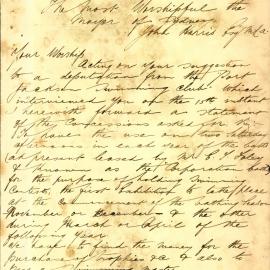 The Most Worshipful the
Mayor of Sydney
John Harris Esq M.P.
Your Worship
Acting on your suggestion
to a deputation from the Port
Jackson Swimming Club which
interviewed you on the 15th instant
I herewith forward a statement
of the concessions asked for viz
To have the use on two Saturday
afternoons in each year of the baths
(at present leased by Mr
& known as the Corporation baths)
for the purpose of holding Swimming
Contests, the first Exhibition to take place
at the commencement of the bathing season
November or December & the other
during March or April of the
following year
We have to find the money for the
purchase of trophies &c & also to